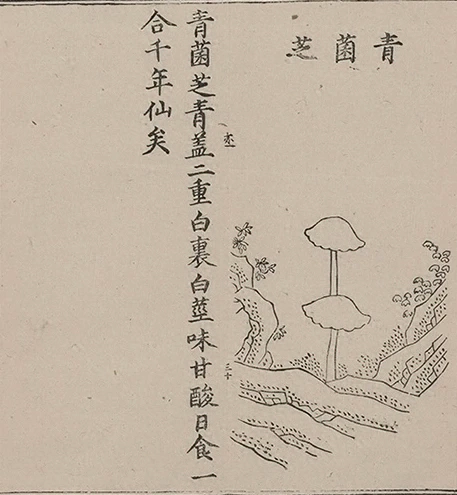 青菌芝
青菌芝青蓋二重白裏白莖味甘酸日食一
合千年仙矣
三十